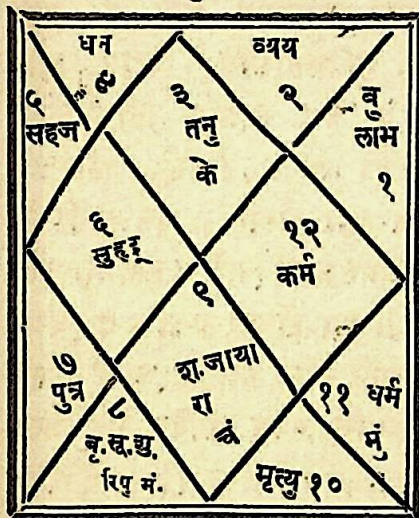 धन
४
व्यय
२
५
सहज
३
तनु
के
वु
लाभ
१
६
सुहृद्
१२
कर्म
९
श.जाया
रा
चं
७
पुत्र
८
बृ.सू.शु.
रिपु मं.
११ धर्म
मुं
मृत्यु १०